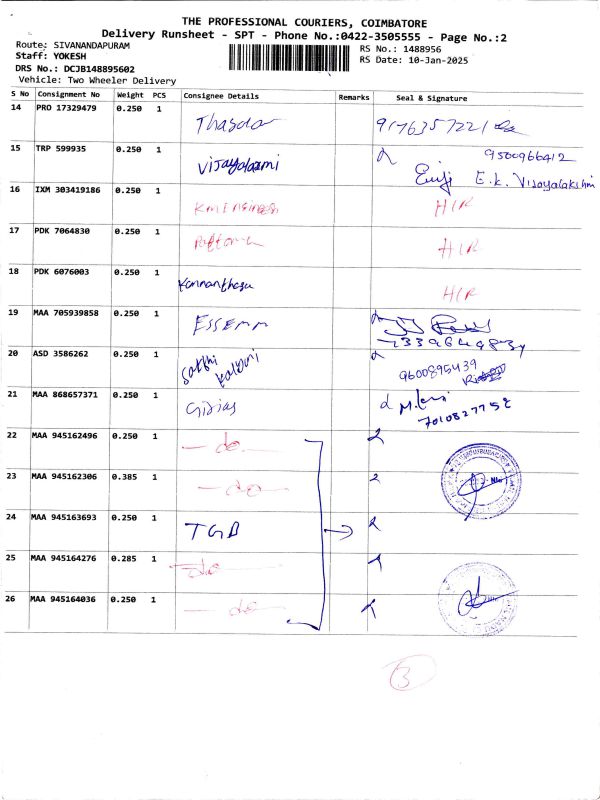 THE PROFESSIONAL COURIERS, COIMBATORE
Delivery Runsheet - SPT - Phone No.:0422-3505555 - Page No.:2
Route: SIVANANDAPURAM
RS No.: 1488956
Staff: YOKESH
RS Date: 10-Jan-2025
DRS No.: DCJB148895602
Vehicle: Two Wheeler Delivery
S No Consignment No Weight PCS Consignee Details Remarks Seal & Signature
14 PRO 17329479 0.250 1 9176357221
15 TRP 599935 0.250 1 Vijayalaxmi 9500966412
E.K. Vijayalakshmi
16 IXM 303419186 0.250 1 HIR
17 PDK 7064830 0.250 1 HIR
18 PDK 6076003 0.250 1 HIR
19 MAA 705939858 0.250 1 ESSEMM
20 ASD 3586262 0.250 1 Sakthi 9600895439
21 MAA 868657371 0.250 1 7010827752
22 MAA 945162496 0.250 1 - do -
23 MAA 945162306 0.385 1 - do -
24 MAA 945163693 0.250 1 TGB
25 MAA 945164276 0.285 1 - do -
26 MAA 945164036 0.250 1 - do -
3